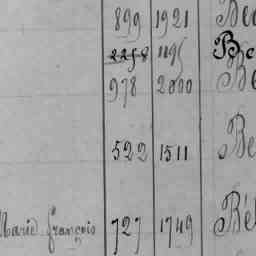 899 1921
2258 1195
978 2000
522 1511
Marie françois 727 1749 Bél